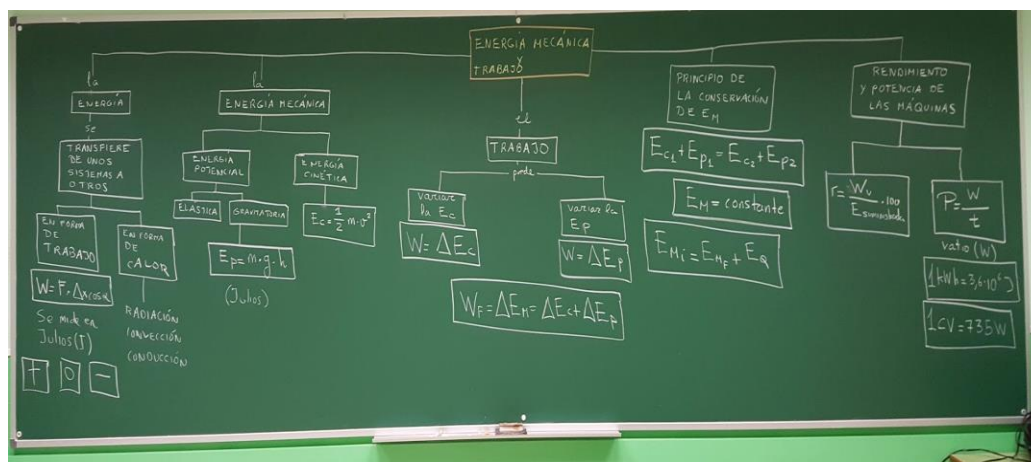 ENERGÍA MECÁNICA
Y
TRABAJO
la
ENERGÍA
se
TRANSFIERE
DE UNOS
SISTEMAS A
OTROS
EN FORMA
DE
TRABAJO
W=F·Δx cosα
Se mide en
Julios (J)
+ 0 −
EN FORMA
DE
CALOR
RADIACIÓN
CONVECCIÓN
CONDUCCIÓN
la
ENERGÍA MECÁNICA
ENERGÍA
POTENCIAL
ELÁSTICA
GRAVITATORIA
Ep=m·g·h
(Julios)
ENERGÍA
CINÉTICA
Ec=1/2 m·v²
el
TRABAJO
puede
variar
la Ec
W=ΔEc
variar la
Ep
W=ΔEp
WF=ΔEM=ΔEc+ΔEp
PRINCIPIO DE
LA CONSERVACIÓN
DE EM
Ec1+Ep1=Ec2+Ep2
EM=constante
EMi=EMF+EQ
RENDIMIENTO
Y POTENCIA DE
LAS MÁQUINAS
r=Wu/Esuministrada·100
P=W/t
vatio (W)
1kWh=3,6·10⁶J
1CV=735W